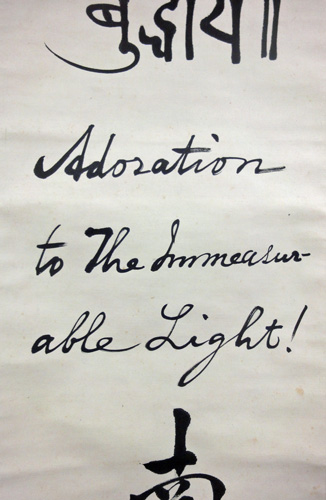 बुद्धाय॥
Adoration
to The Immeasur-
able Light!
南